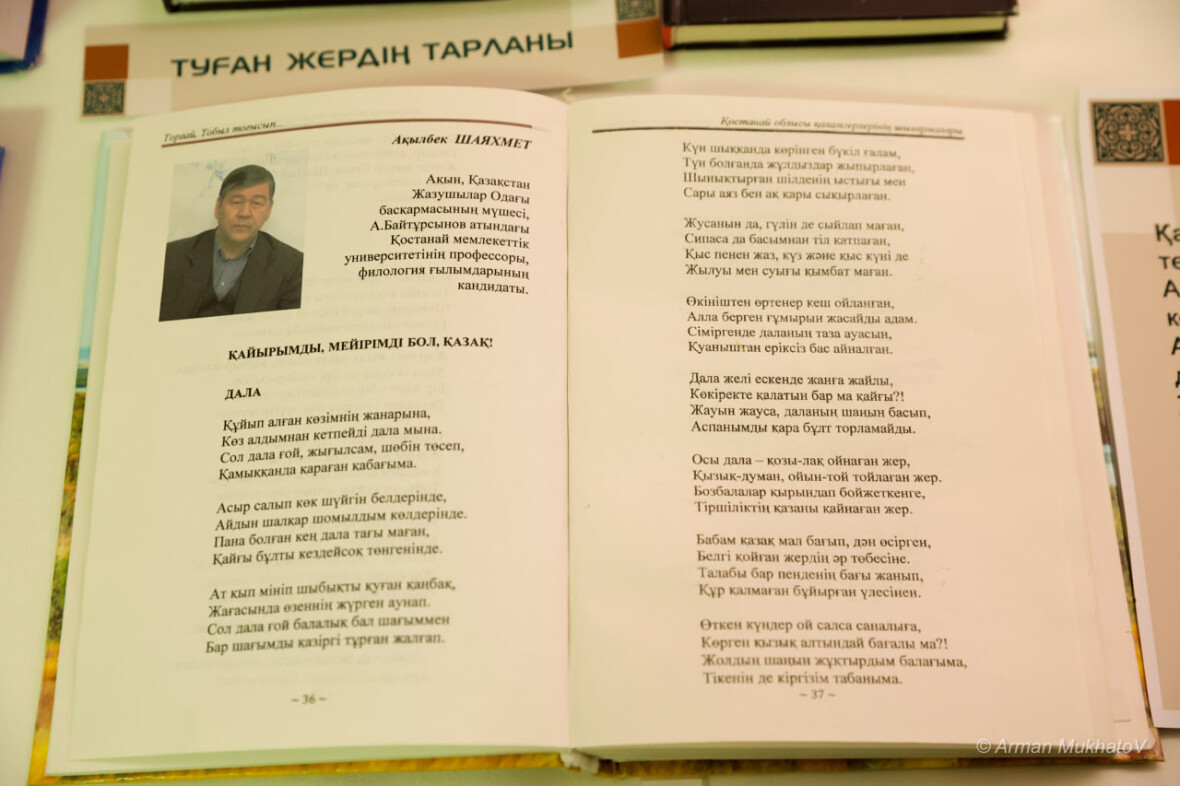 ТУҒАН ЖЕРДІҢ ТАРЛАНЫ
Торғай, Тобыл тоғысып...
Ақылбек ШАЯХМЕТ
Ақын, Қазақстан
Жазушылар Одағы
басқармасының мүшесі,
А.Байтұрсынов атындағы
Қостанай мемлекеттік
университетінің профессоры,
филология ғылымдарының
кандидаты.
ҚАЙЫРЫМДЫ, МЕЙІРІМДІ БОЛ, ҚАЗАҚ!
ДАЛА
Құйып алған көзімнің жанарына,
Көз алдымнан кетпейді дала мына.
Сол дала ғой, жығылсам, шөбін төсеп,
Қамыққанда қараған қабағыма.
Асыр салып көк шүйгін белдерінде,
Айдын шалқар шомылдым көлдерінде.
Пана болған кең дала тағы маған,
Қайғы бұлты кездейсоқ төнгенінде.
Ат қып мініп шыбықты қуған қаңбақ,
Жағасында өзеннің жүрген аунап.
Сол дала ғой балалық бал шағыммен
Бар шағымды қазіргі тұрған жалғап.
~ 36 ~
Қостанай облысы қаламгерлерінің шығармалары
Күн шыққанда көрінген бүкіл ғалам,
Түн болғанда жұлдыздар жыпырлаған,
Шынықтырған шілденің ыстығы мен
Сары аяз бен ақ қары сықырлаған.
Жусанын да, гүлін де сыйлап маған,
Сипаса да басымнан тіл қатпаған,
Қыс пенен жаз, күз және қыс күні де
Жылуы мен суығы қымбат маған.
Өкініштен өртенер кеш ойланған,
Алла берген ғұмырын жасайды адам.
Сіміргенде даланың таза ауасын,
Қуаныштан еріксіз бас айналған.
Дала желі ескенде жанға жайлы,
Көкіректе қалатын бар ма қайғы?!
Жауын жауса, даланың шаңын басып,
Аспанымды қара бұлт торламайды.
Осы дала – қозы-лақ ойнаған жер,
Қызық-думан, ойын-той тойлаған жер.
Бозбалалар қырындап бойжеткенге,
Тіршіліктің қазаны қайнаған жер.
Бабам қазақ мал бағып, дән өсірген,
Белгі қойған жердің әр төбесіне.
Талабы бар пенденің бағы жанып,
Құр қалмаған бұйырған үлесінен.
Өткен күндер ой салса саналыға,
Көрген қызық алтындай бағалы ма?!
Жолдың шаңын жұқтырдым балағыма,
Тікенін де кіргізім табаныма.
~ 37 ~
© Arman MukhatoV